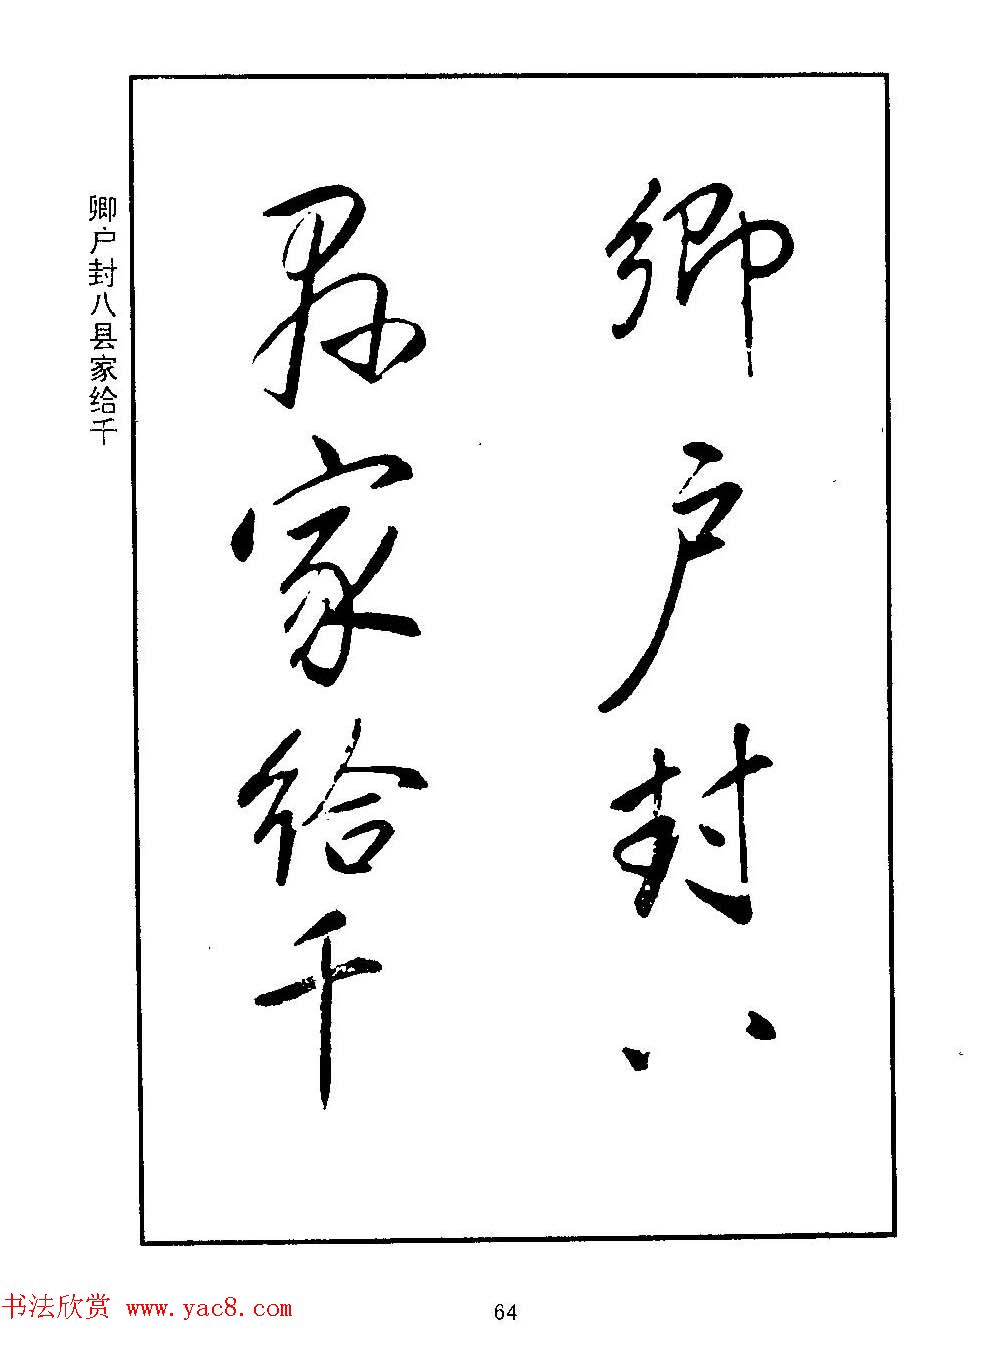 卿户封八
县家给千
卿户封八县家给千
书法欣赏 www.yac8.com
64